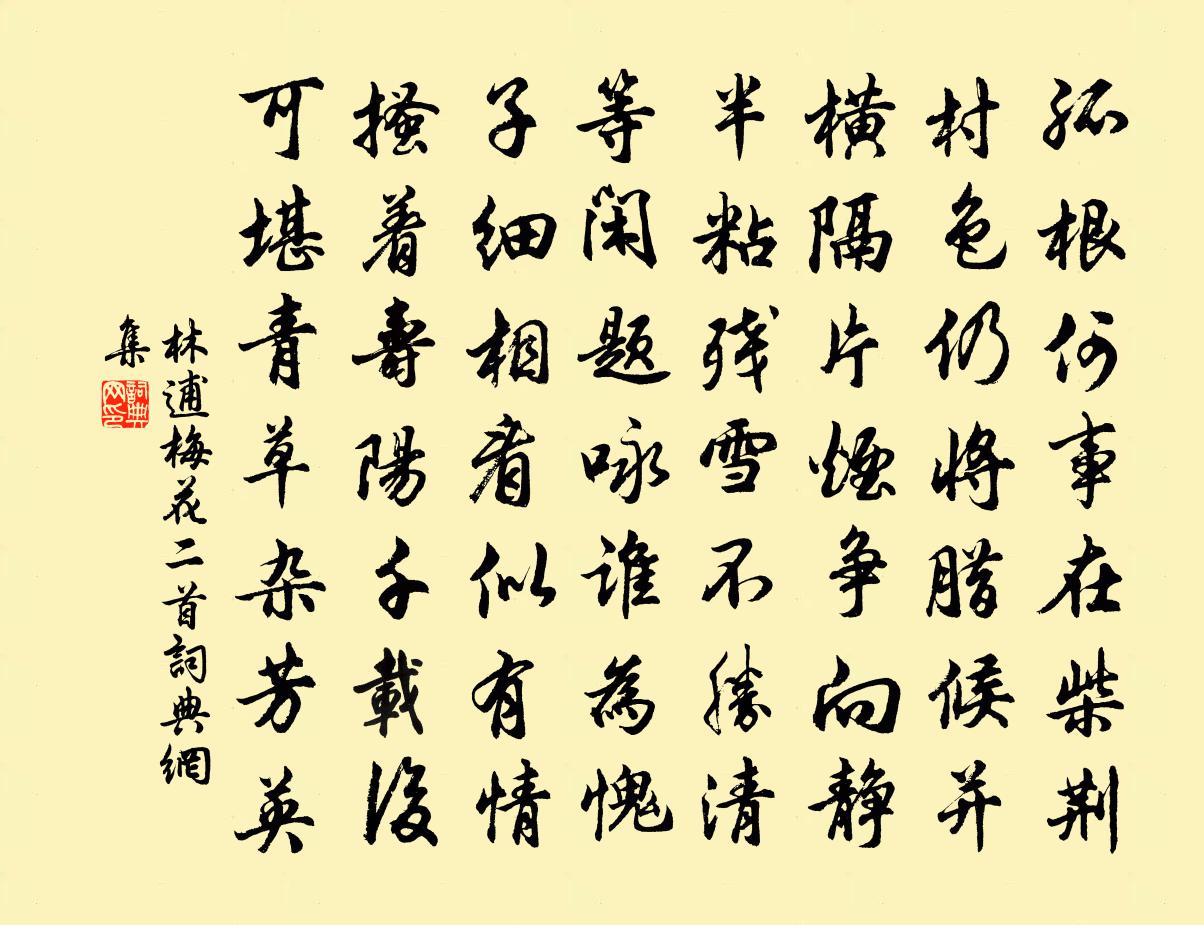 孤根何事在柴荆
村色仍将腊候并
横隔片煙争向静
半粘残雪不勝清
等閑题咏谁為愧
子细相看似有情
搔着壽陽千載後
可堪青草杂芳英
林逋梅花二首詞典網
集
詞典
网印